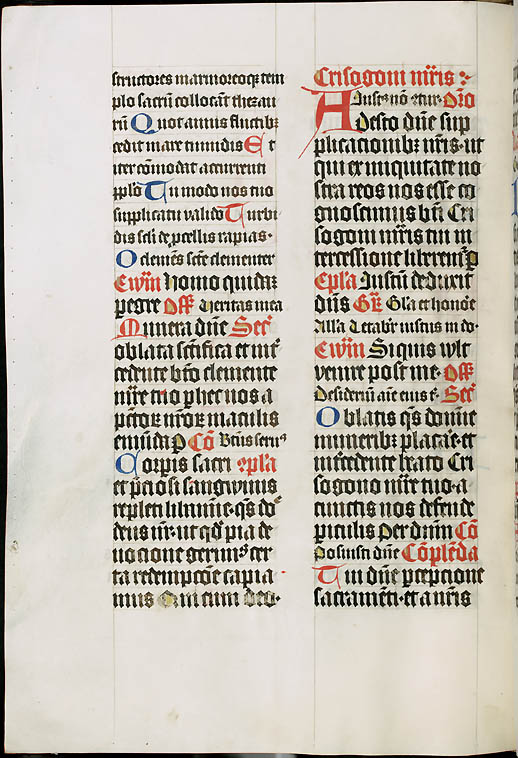 structores marmoreoq; tem
plo sacrū collocāt thezau
rū Quot annis fluctib;
cedit mare tumidis Et
iter cōmodat accurrenti
pplō Tu modo nos tuo
supplicatu valido Turbi
dis scłi de pcellis rapias·
O clemēs sctē clementer
Ewm̄ homo quidā
pegre Off Veritas mea
Munera dn̄e Secr̄
oblata sctīfica et int̄
cedente btō clemente
mr̄e tuo p hec nos a
pctōr nr̄or maculis
emūda P Cō Btūs seruꝰ
Corpis sacri cpl̄a
et pciosi sangwinis
repleti libamīe· qs do
deus nr̄· ut qd̄ pia de
uocione gerimꝰ cer
ta redempcōe capia
mus Qui cum deo·
Crisogoni mr̄is
A Iustꝰ nō  Or̄o
Adesto dn̄e sup
plicationib; nr̄is· ut
qui ex iniquitate no
stra reos nos esse co
gnoscimus btī Cri
sogoni mr̄is tui in
tercessione liberem̄ P
Epl̄a Iustū deduxit
dn̄s Gr̄ Gła et honōe
Alla Letabr̄ iustus in do·
Ewm̄ Si quis wlt
venire post me· Off
Desideriū aīe eius ē· Secr̄
Oblatis qs domine
munerib; placāe· et
int̄cedente beato Cri
sogono mr̄e tuo· a
cunctis nos defende
piculis Per dnm̄ Cō
Posuisti dn̄e Cōplēda
Tui dn̄e pcepcione
sacramēti· et a nr̄is